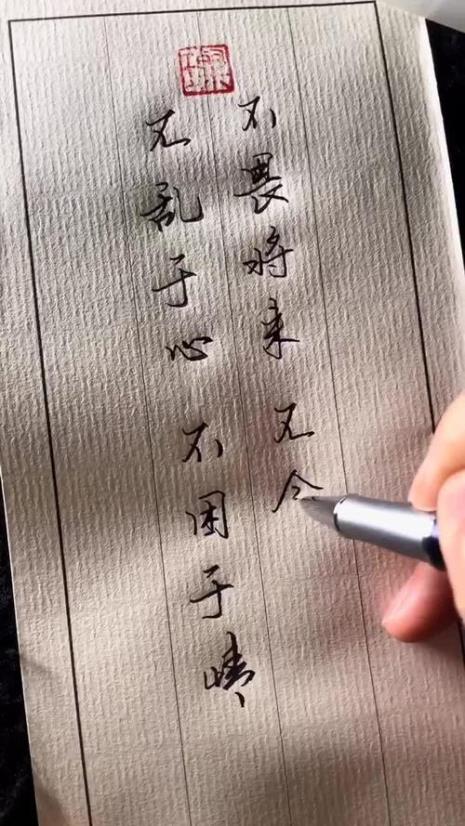 不乱于心 不困于情
不畏将来 不今